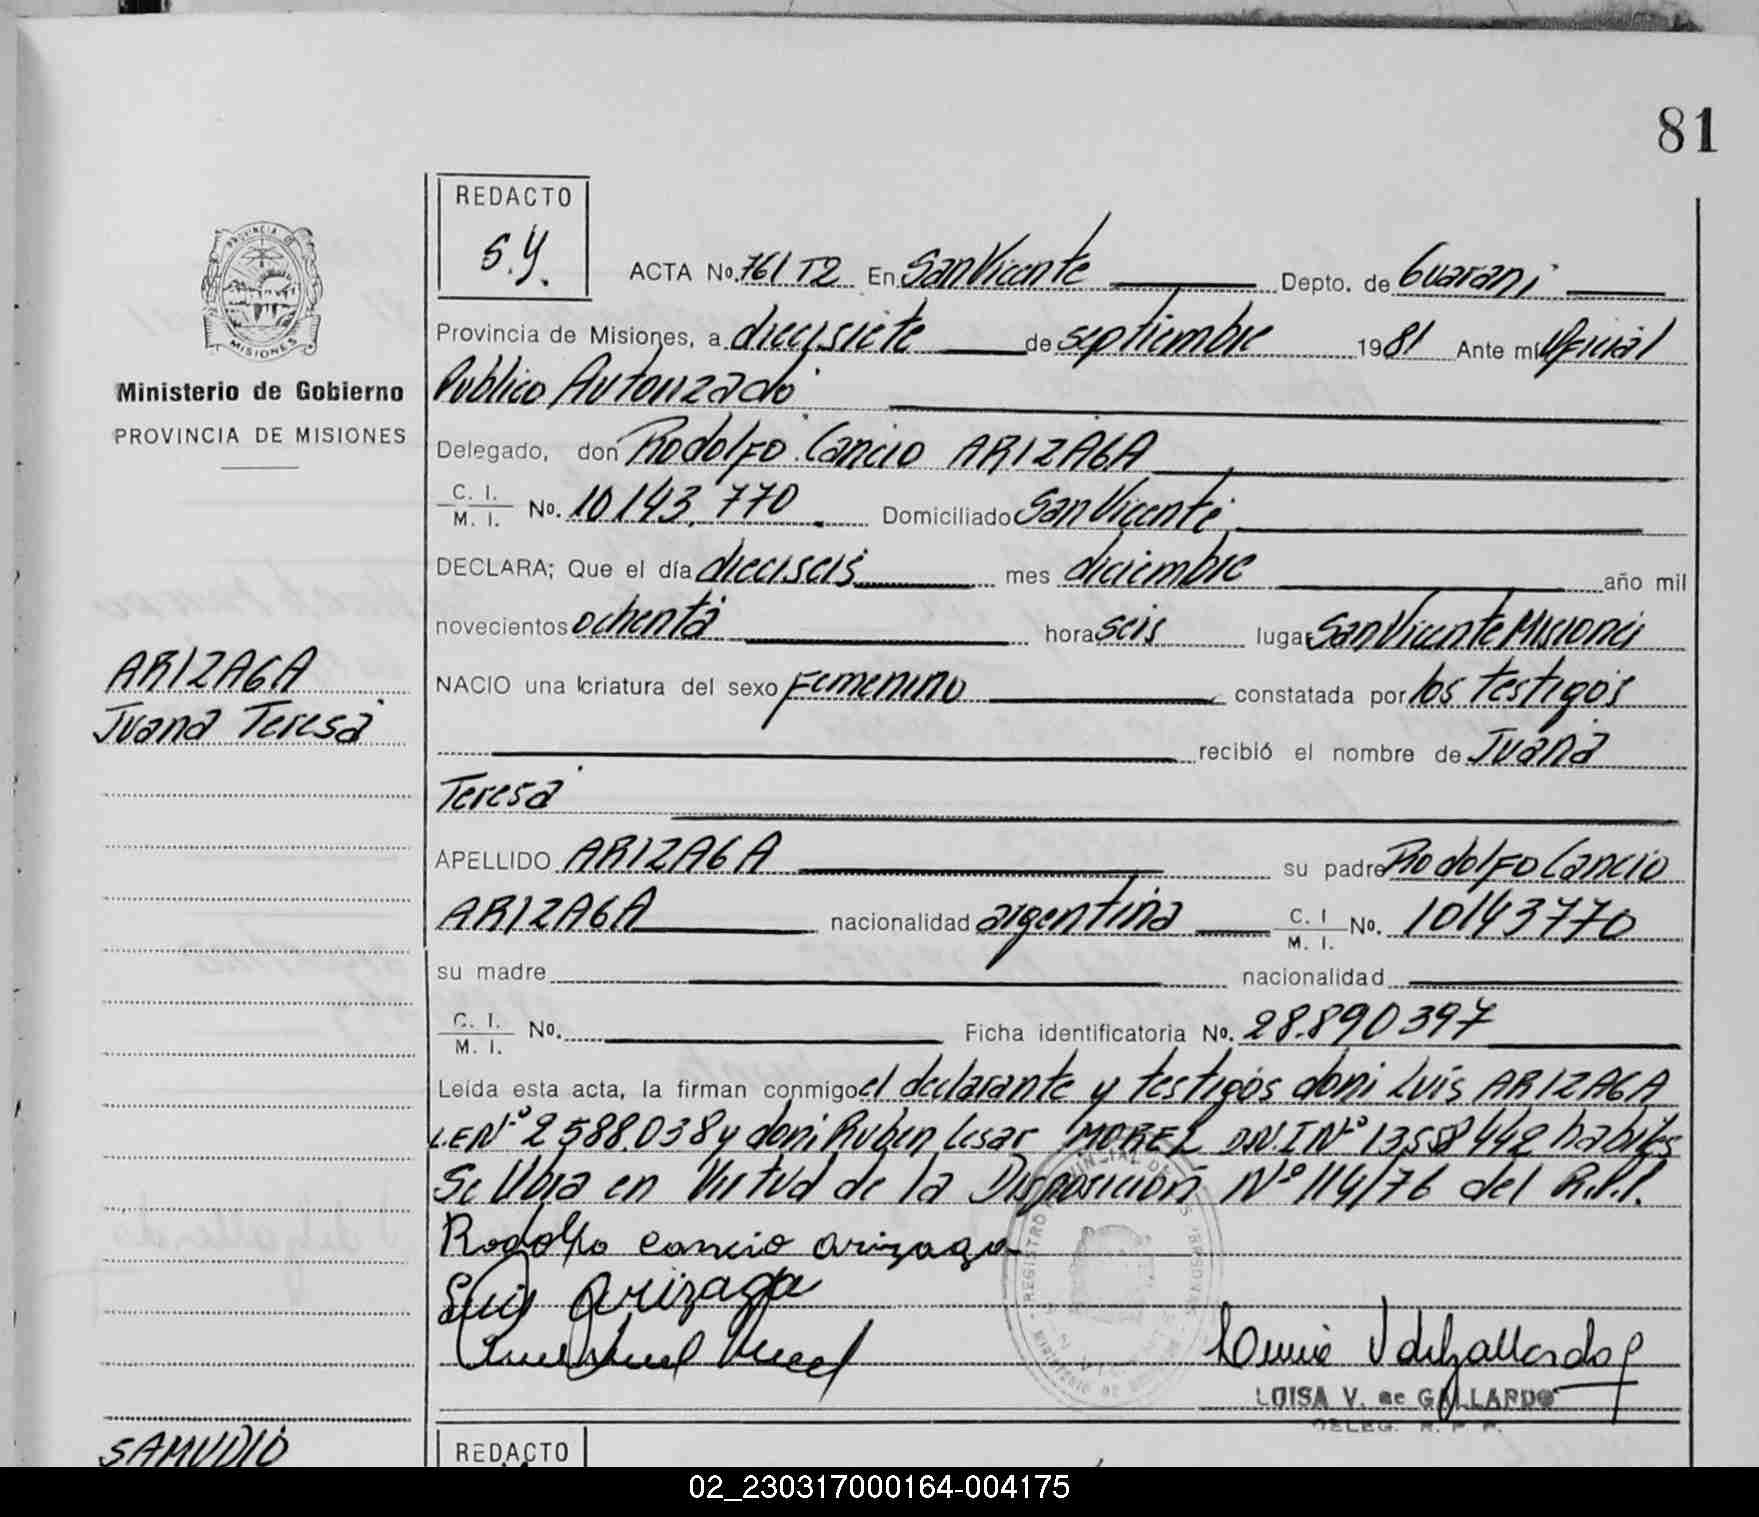 81
REDACTO
S.Y.
PROVINCIA DE
MISIONES
Ministerio de Gobierno
PROVINCIA DE MISIONES
ARIZAGA
Juana Teresa
ACTA No. 761 T2 En San Vicente Depto. de Guarani
Provincia de Misiones, a diecisiete de septiembre 1981 Ante mí Oficial
Publico Autorizado
Delegado, don Rodolfo Cancio ARIZAGA
C. I. M. I. No. 10.143.770 Domiciliado San Vicente
DECLARA; Que el día dieciseis mes diciembre año mil
novecientos ochenta hora seis lugar San Vicente Misiones
NACIO una criatura del sexo Femenino constatada por los testigos
recibió el nombre de Juana
Teresa
APELLIDO ARIZAGA su padre Rodolfo Cancio
ARIZAGA nacionalidad argentina C. I M. I. No. 10143770
su madre nacionalidad
C. I. M. I. No. Ficha identificatoria No. 28.890397
Leída esta acta, la firman conmigo el declarante y testigos don: Luis ARIZAGA
L.E Nº 2588.038 y don: Ruben Cesar MOREL D.N.I Nº 13558442 habiles
Se labra en Virtud de la Disposición Nº 114/76 del R.P.P.
Rodolfo cancio arizaga
Luis Arizaga
LUISA V. de GALLARDO
DELEG. R. P. P.
SAMUDIO
REDACTO
02_230317000164-004175